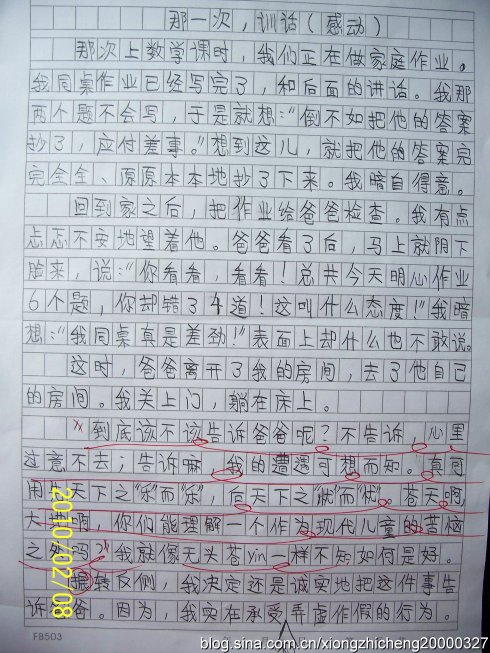 那一次，训话（感动）
那次上数学课时，我们正在做家庭作业。
我同桌作业已经写完了，和后面的讲话。我那
两个题不会写，于是就想：“倒不如把他的答案
抄了，应付差事。”想到这儿，就把他的答案完
完全全、原原本本地抄了下来。我暗自得意。
回到家之后，把作业给爸爸检查。我有点
忐忑不安地望着他。爸爸看了后，马上就阴下
脸来，说：“你看看，看看！总共今天明心作业
6个题，你却错了4道！这叫什么态度！”我暗
想：“我同桌真是差劲！”表面上却什么也不敢说。
这时，爸爸离开了我的房间，去了他自己
的房间。我关上门，躺在床上。
“到底该不该告诉爸爸呢？不告诉，心里
过意不去；告诉嘛，我的遭遇可想而知。真可
谓先天下之“乐”而“乐”，后天下之“忧”而“忧”。苍天啊，
大地啊，你们能理解一个作为现代儿童的苦恼
之处吗？”我就像无头苍yin一样不知如何是好。
辗转反侧，我决定还是诚实地把这件事告
诉爸爸。因为，我实在承受弄虚作假的行为。
2010/02/08
FB503
blog.sina.com.cn/xiongzhicheng20000327